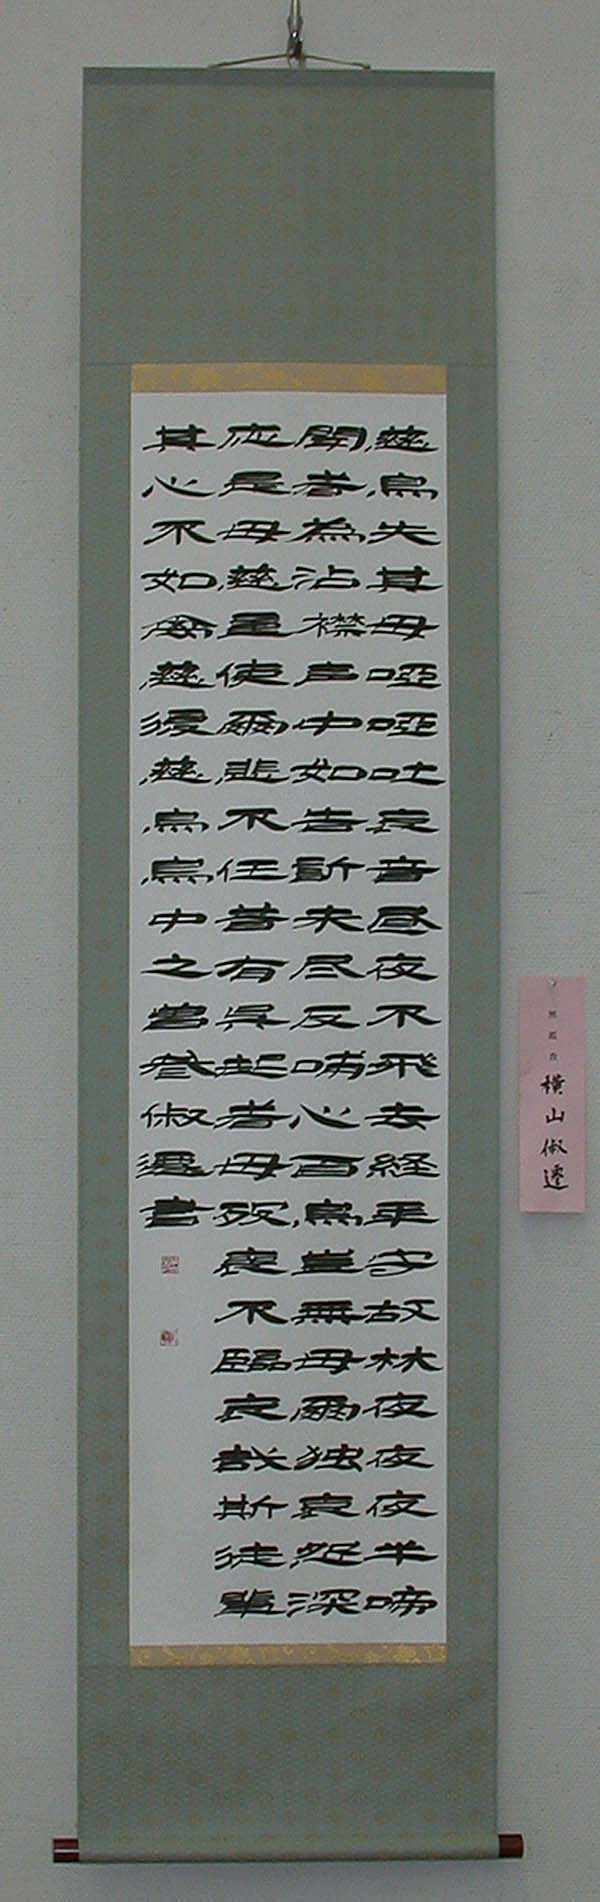 慈烏失其母啞啞吐哀音昼夜不飛去経年守故林夜夜夜半啼
聞者為沾襟声中如告訴未尽反哺心百鳥豈無母爾独哀怨深
応是母慈重使爾悲不任昔有呉起者母歿喪不臨哀哉斯徒輩
其心不如禽慈復慈烏烏中之曽参俶遷書
無鑑査
横山俶遷